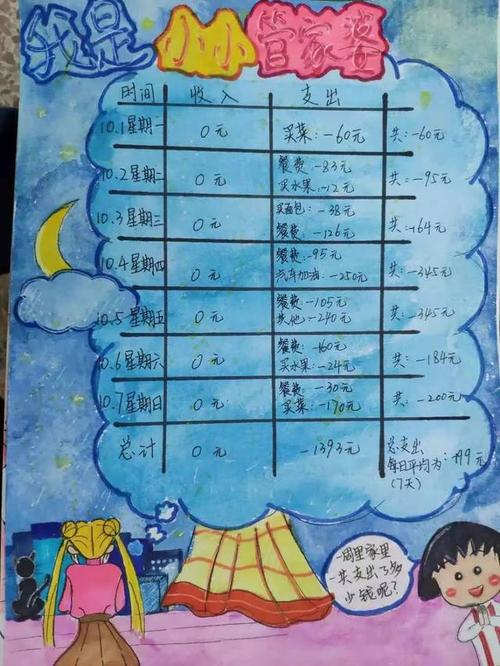 我是小小管家婆
时间 收入 支出
10.1星期一 0元 买菜:-60元 共:-60元
10.2星期二 0元 餐费:-83元 共:-95元
买水果:-12元
10.3星期三 0元 买面包:-38元 共:-164元
餐费:-126元
10.4星期四 0元 餐费:-95元 共:-345元
汽车加油:-250元
10.5星期五 0元 餐费:-105元 共:-345元
其他:-240元
10.6星期六 0元 餐费:-160元 共:-184元
买水果:-24元
10.7星期日 0元 餐费:-30元 共:-200元
买菜:-170元
总计 0元 -1393元 总支出
每日平均为:-199元
(7天)
一周里家里
一共支出了多
少钱呢?